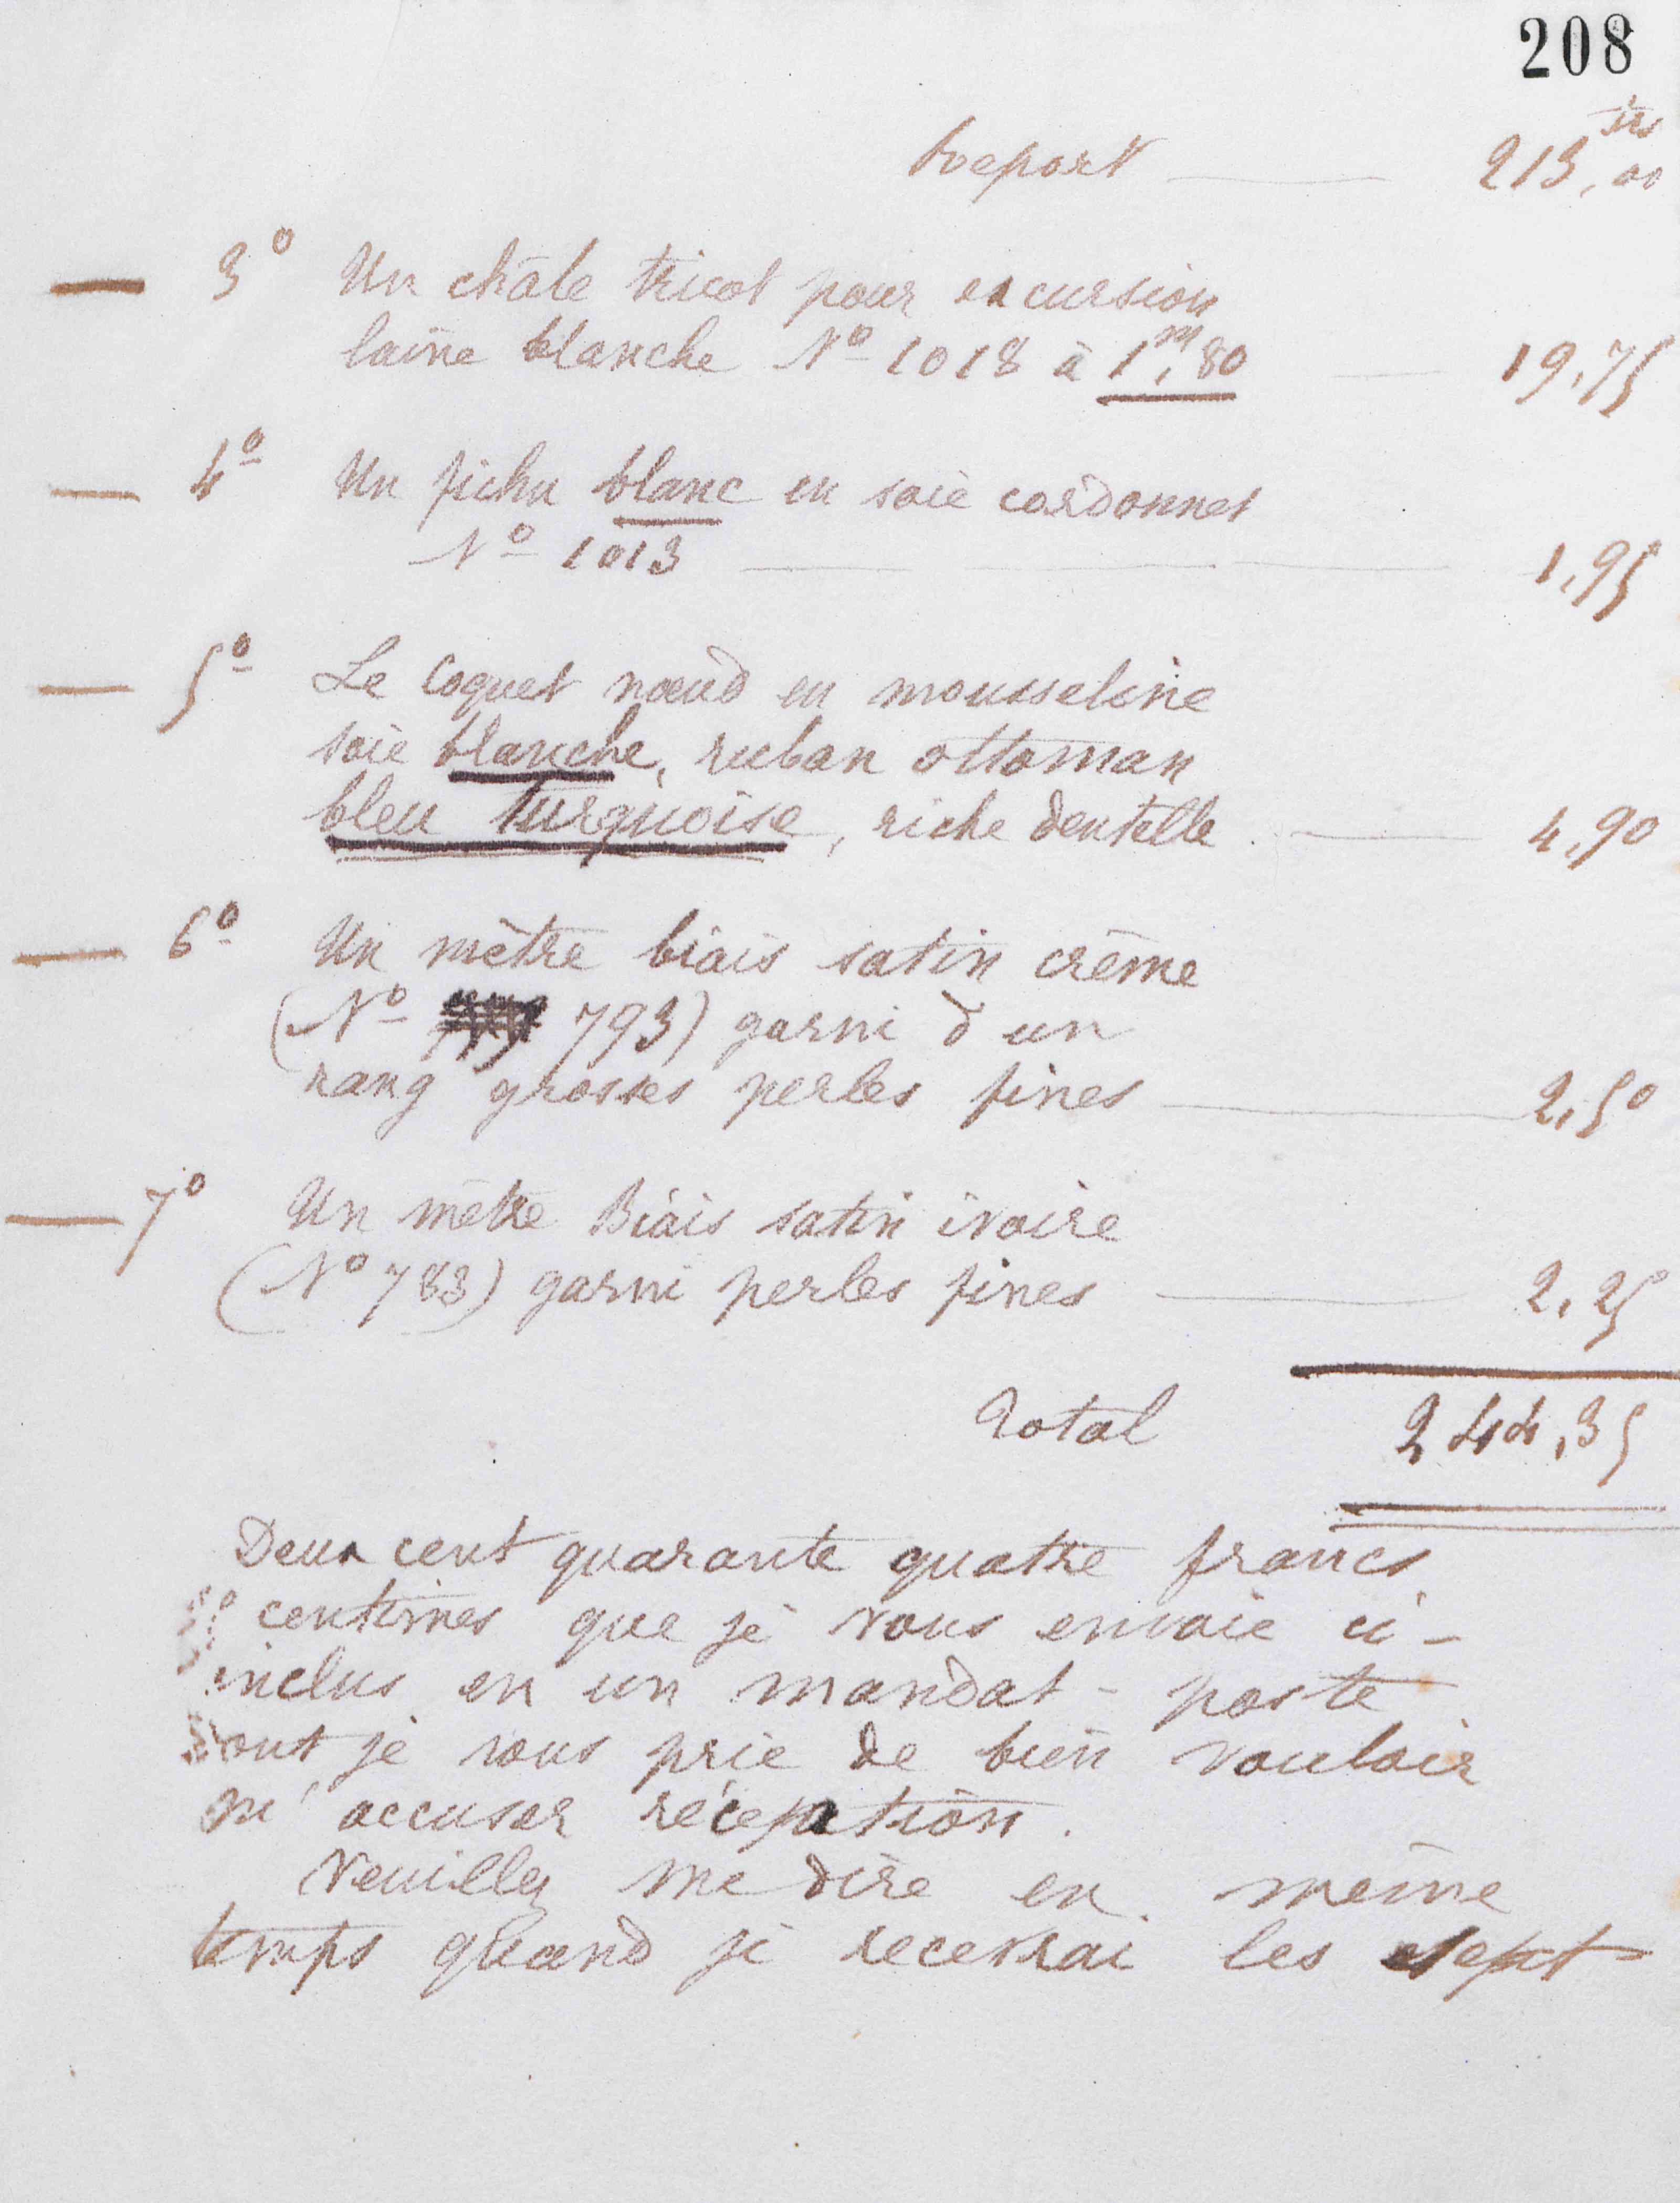 208
Report 213,00 frs
3º Un châle tricot pour excursion
laine blanche Nº 1018 à 1m,80 19,75
4º Un fichu blanc en soie cordonnet
Nº 1013 1,95
5º Le Coquet nœud en mousseline
soie blanche, ruban ottoman
bleu turquoise, riche dentelle 4,90
6º Un mètre biais satin crème
(Nº 793) garni d'un
rang grosses perles fines 2,50
7º Un mètre Biais satin ivoire
(Nº 783) garni perles fines 2,25
Total 244,35
Deux cent quarante quatre francs
centimes que je vous envoie ci-
inclus en un mandat-poste
dont je vous prie de bien vouloir
m'accuser réception.
Veuillez me dire en même
temps quand je recevrai les sept